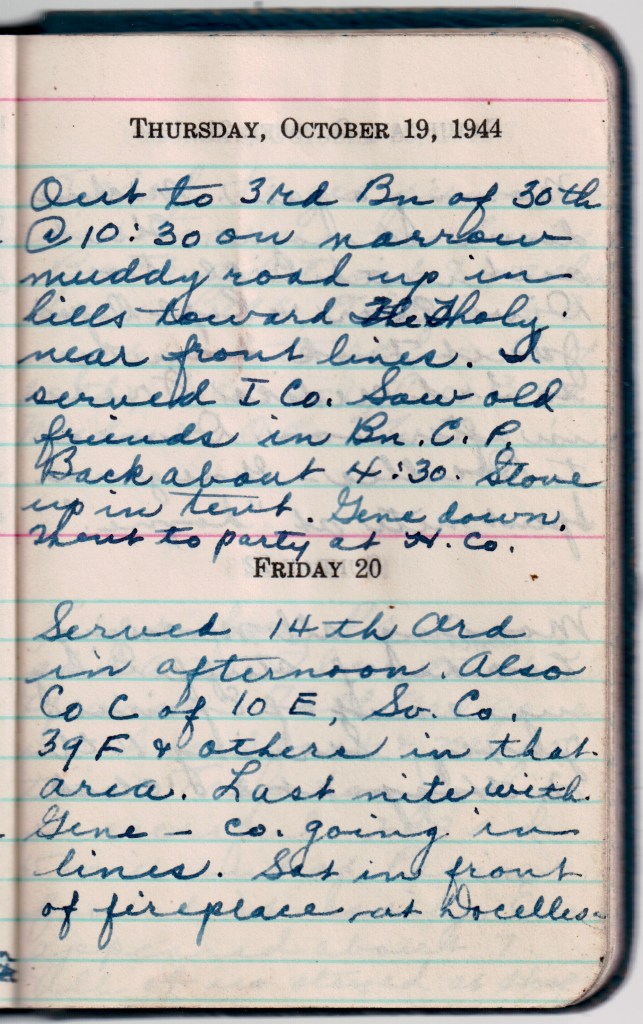 THURSDAY, OCTOBER 19, 1944
Out to 3rd Bn of 30th
@ 10:30 on narrow
muddy road up in
hills toward The Tholy
near front lines. I
served I Co. Saw old
friends in Bn. C. P.
Back about 4:30. Stove
up in tent. Gene down.
Went to party at H. Co.
FRIDAY 20
Served 14th Ord
in afternoon. Also
Co C of 10 E, Sv. Co.
39 F & others in that
area. Last nite with
Gene – co. going in
lines. Sat in front
of fireplace at Docelles